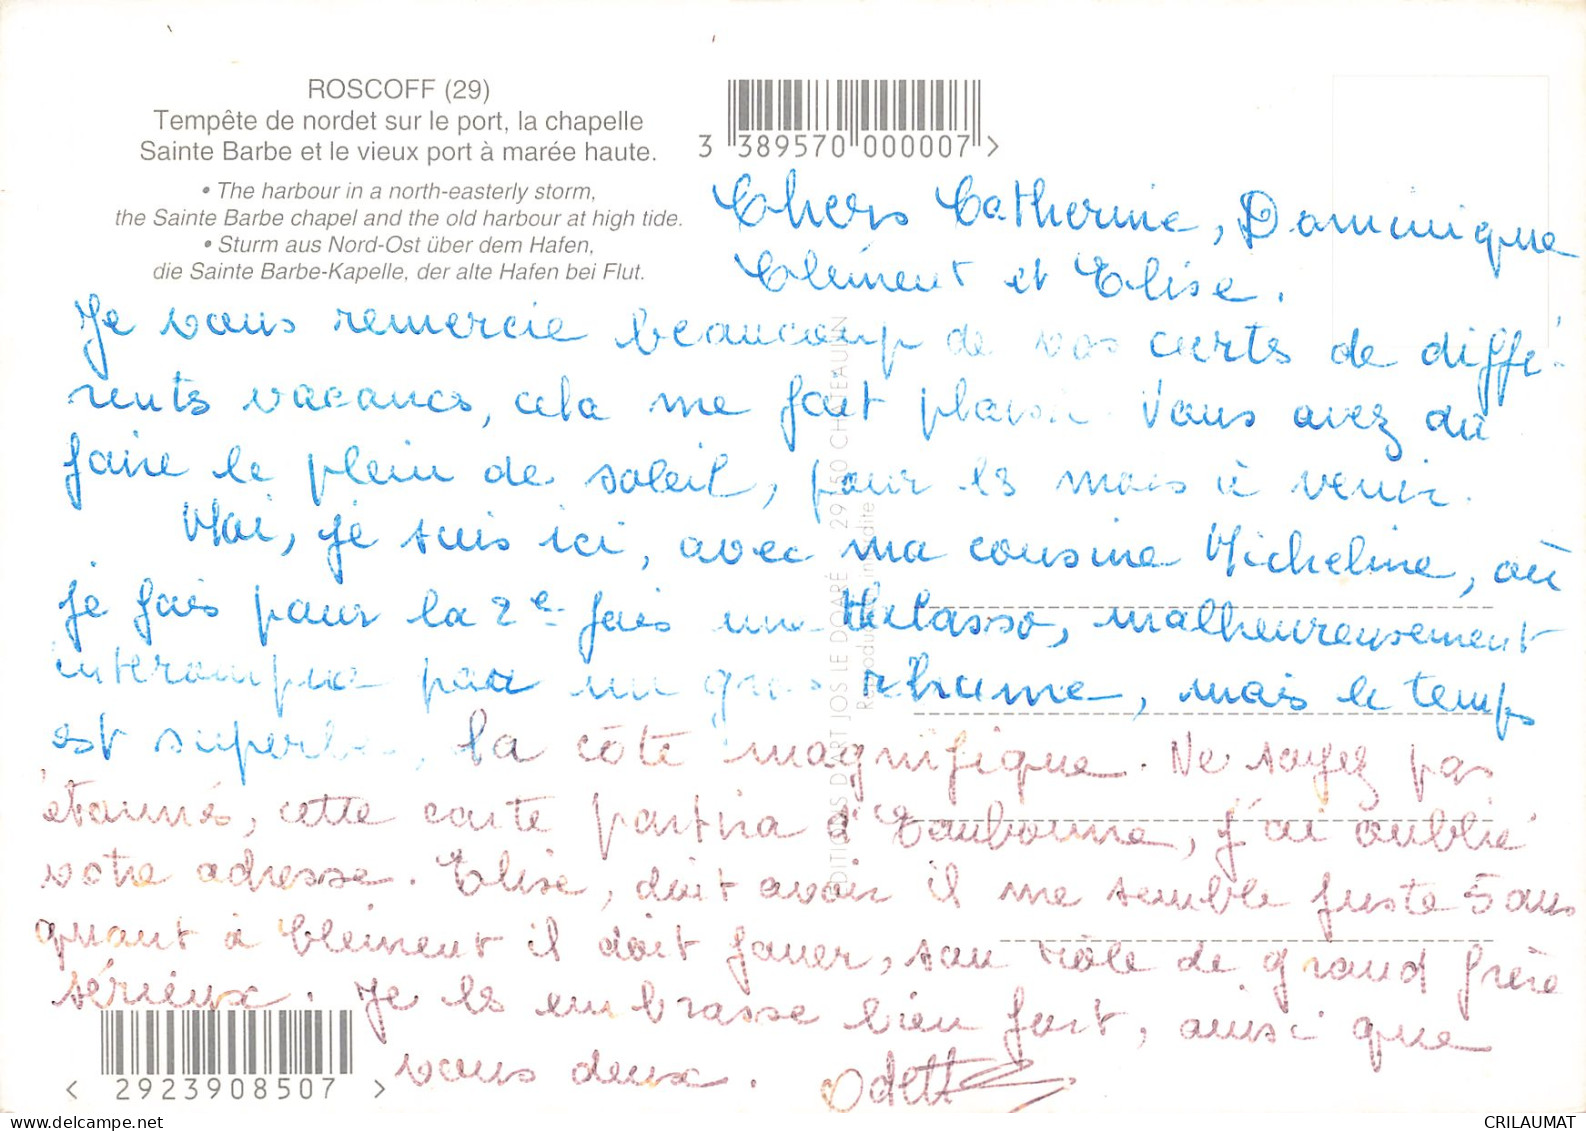 ROSCOFF (29)
Tempête de nordet sur le port, la chapelle
Sainte Barbe et le vieux port à marée haute.
• The harbour in a north-easterly storm,
the Sainte Barbe chapel and the old harbour at high tide.
• Sturm aus Nord-Ost über dem Hafen,
die Sainte Barbe-Kapelle, der alte Hafen bei Flut.
3 389570 000007 >
Chers Catherine, Dominique
Clément et Elise.
Je vous remercie beaucoup de vos cartes de diffé-
rentes vacances, cela me fait plaisir. Vous avez du
faire le plein de soleil, pour les mois à venir.
Moi, je suis ici, avec ma cousine Micheline, où
je fais pour la 2e fois une thalasso, malheureusement
interompue par un gros rhume, mais le temps
est superbe, la côte magnifique. Ne soyez pas
étonnés, cette carte partira d'Eaubonne, j'ai oublié
votre adresse. Elise, doit avoir il me semble juste 5 ans
quant à Clément il doit jouer, son rôle de grand frère
sérieux. Je les embrasse bien fort, ainsi que
vous deux. Odette
EDITIONS D'ART JOS LE DOARÉ 29150 CHATEAULIN
Reproduction interdite
< 2923908507 >
CRILAUMAT